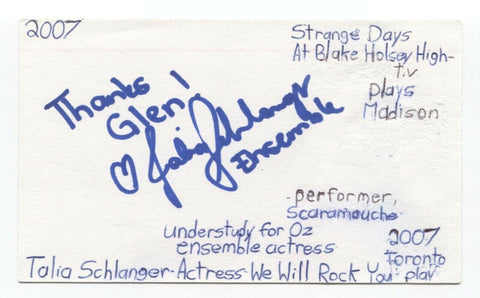 2007
Strange Days
At Blake Holsey High-
t.v.
plays
Madison
Thanks
Glen!
♡ Talia Schlanger
Ensemble
performer,
Scaramouche
understudy for Oz
ensemble actress
2007
Toronto
Talia Schlanger-Actress-We Will Rock You-play